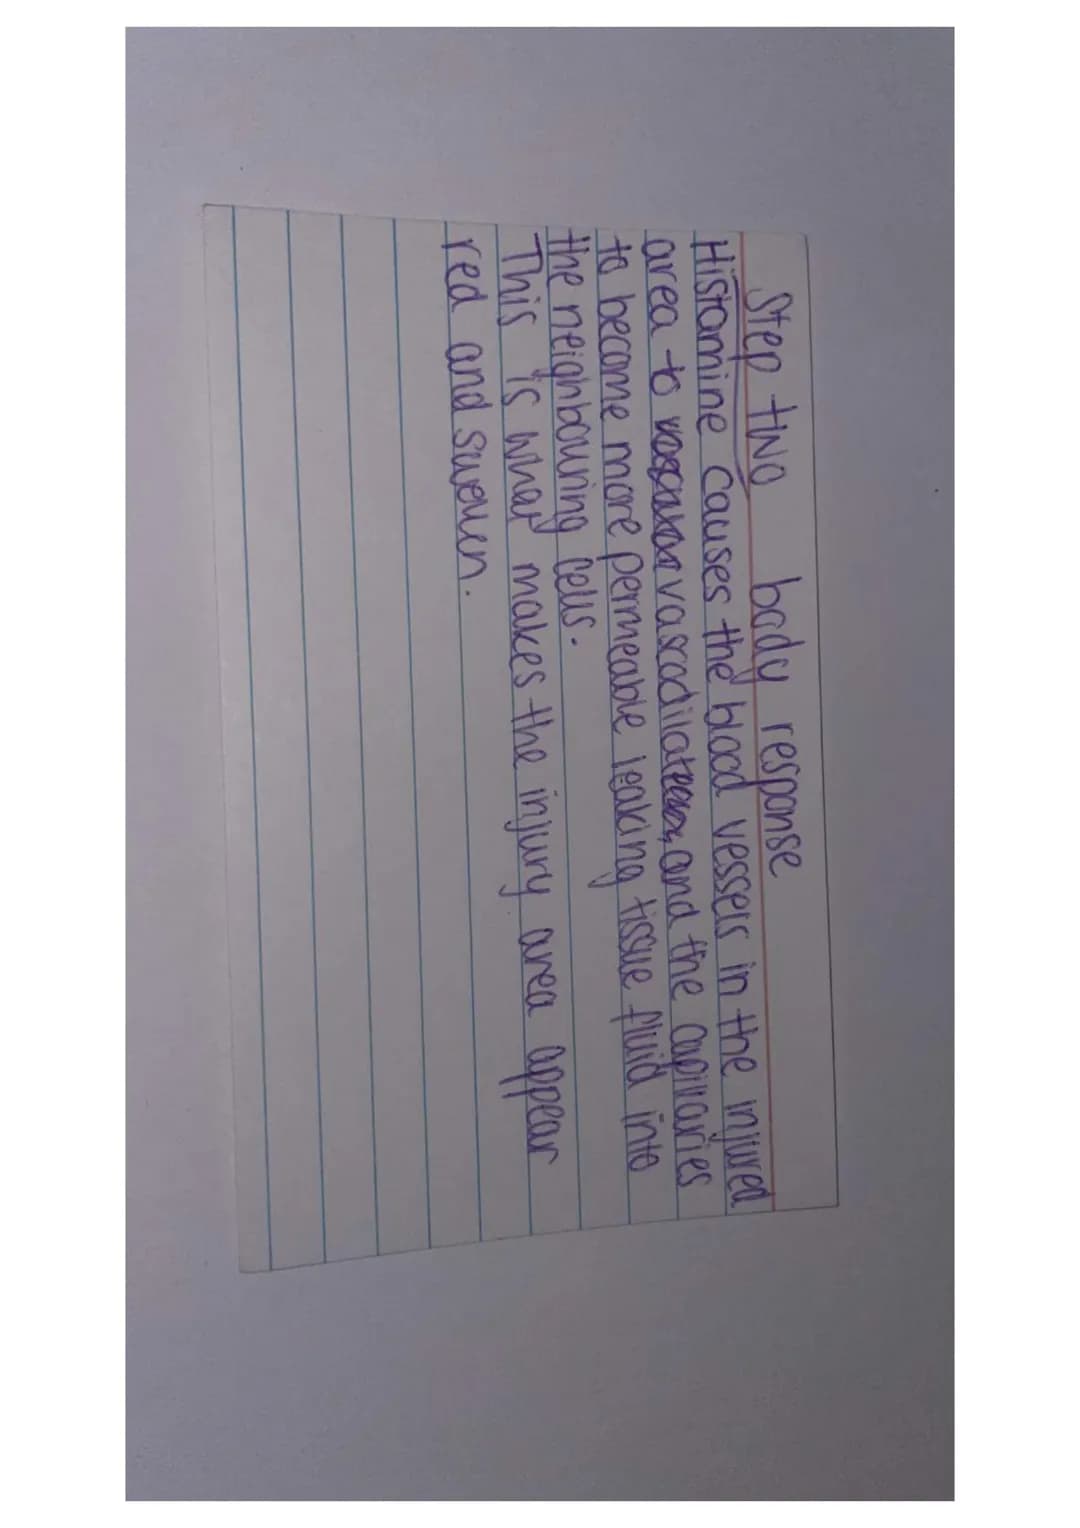 Step two body response
Histamine causes the blood vessels in the injured
area to vascodilate, and the capillaries
to become more permeable leaking tissue fluid into
the neighbouring cells.
This is what makes the injury area appear
red and swollen.